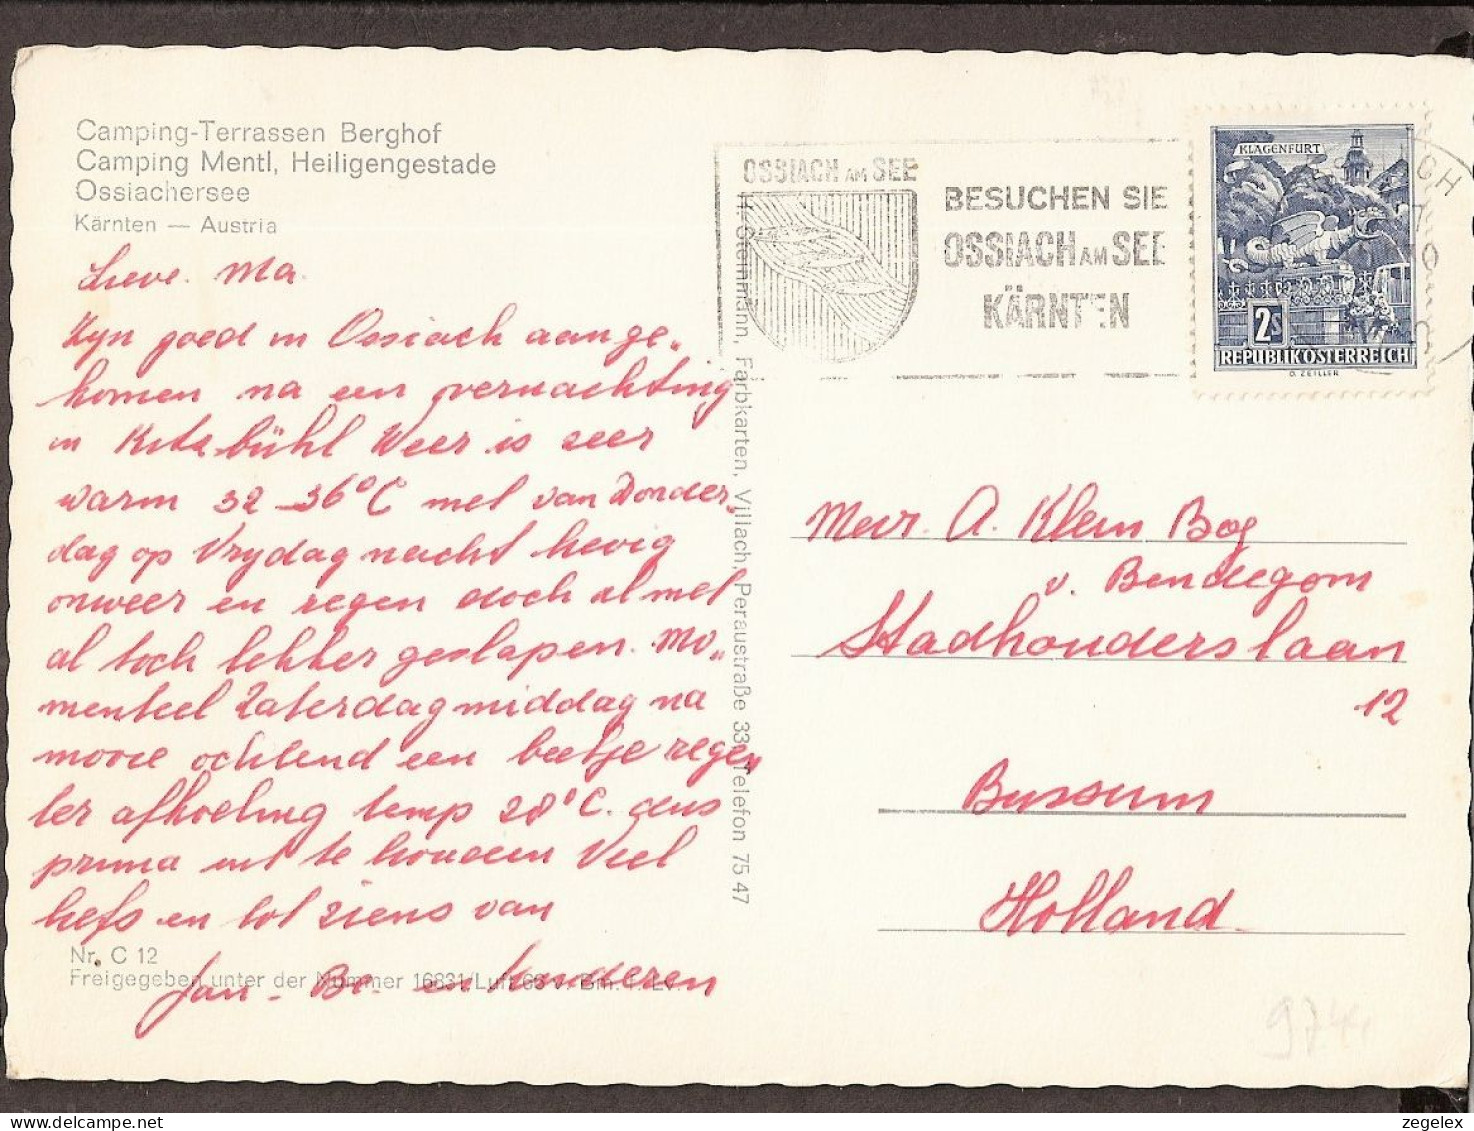 Camping-Terrassen Berghof
Camping Mentl, Heiligengestade
Ossiachersee
Kärnten — Austria
Lieve Ma.
Zyn goed in Ossiach aange-
komen na een overnachting
in Kitzbühl Weer is zeer
warm 32-36°C met van Donder-
dag op Vrydag nacht hevig
onweer en regen doch al met
al toch lekker geslapen. Mo-
menteel Zaterdagmiddag na
mooie ochtend een beetje regen
ter afkoeling temp 28°C. dus
prima uit te houden Veel
liefs en tot ziens van
Jan - en kinderen
Nr. C 12
Freigegeben unter der Nummer 16831/Luft
H. Steinmann, Farbkarten, Villach, Peraustraße 33, Telefon 75 47
OSSIACH AM SEE
BESUCHEN SIE
OSSIACH AM SEE
KÄRNTEN
KLAGENFURT
2S
REPUBLIK ÖSTERREICH
O. ZEILLER
Mevr. A. Klein Bog
v. Bendegom
Stadhouderslaan
12
Bussum
Holland
974
zegelex